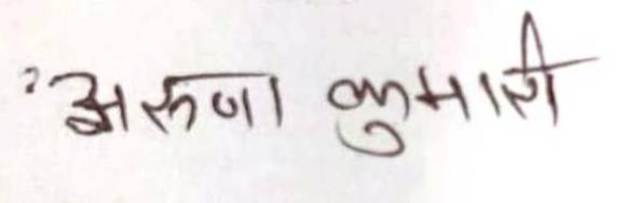 अरुणा कुमारी